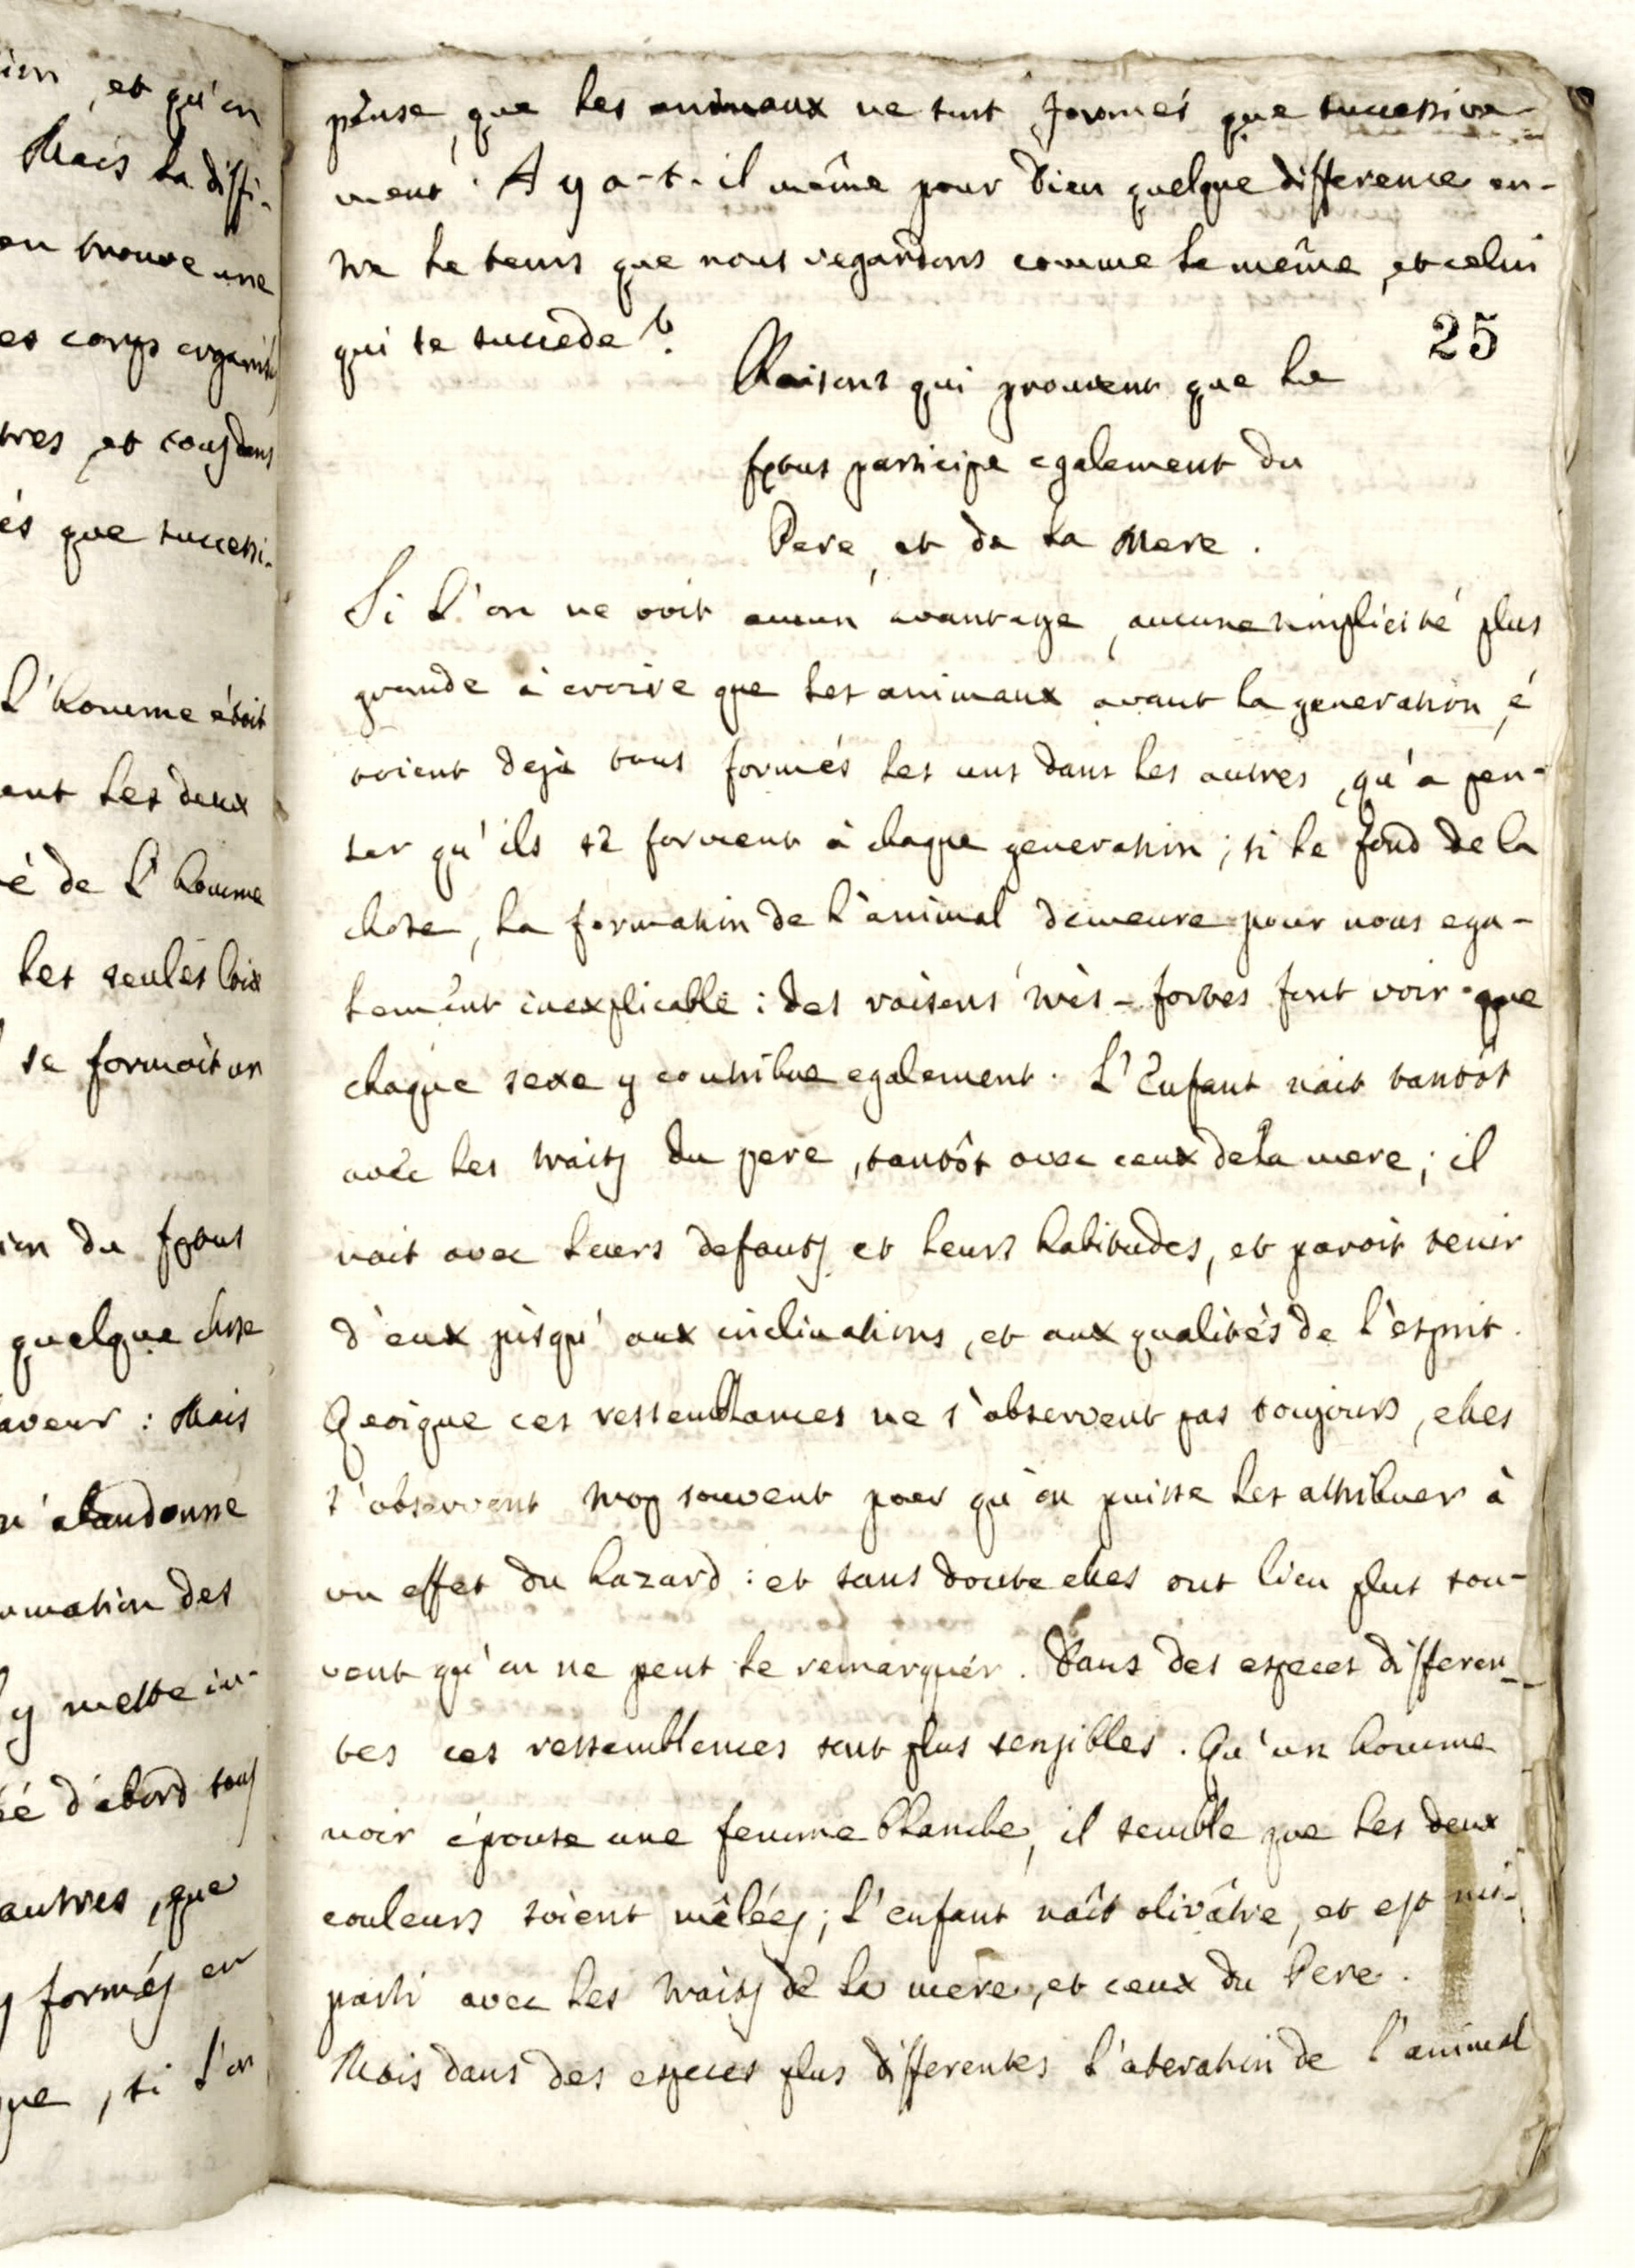 ien, et qu'on
Mais la diffi-
on trouve une
es corps organisés
tres, et tous dans
és que successi-
L'homme étoit
ant les deux
é de l'homme
les seules loix
se formoit un
ion du fœtus
quelque chose
aveur : Mais
n'abandonne
ormation des
y mette in-
é d'abord tous
autres, que
s formés en
que, si l'on
pense, que les animaux ne sont formés que successive-
ment. A y a-t-il même pour Dieu quelque difference en-
tre le tems que nous regardons comme le même, et celui
qui se succede?
25
Raisons qui prouvent que le
fœtus participe egalement du
Pere, et de la Mere.
Si l'on ne voit aucun avantage, aucune simplicité plus
grande à croire que les animaux avant la generation, é
toient dejà tous formés les uns dans les autres, qu'a pen-
ser qu'ils se forment à chaque generation; si le fond de la
chose, la formation de l'animal demeure pour nous ega-
lement inexplicable : des raisons très-fortes font voir que
chaque sexe y contribue egalement. L'Enfant nait tantôt
avec les traits du pere, tantôt avec ceux de la mere; il
nait avec leurs defauts et leurs habitudes, et paroit tenir
d'eux jusqu'aux inclinations, et aux qualités de l'esprit.
Qeoique ces ressemblances ne s'observent pas toujours, elles
s'observent trop souvent pour qu'on puisse les attribuer à
un effet du hazard : et sans doute elles ont lieu plus sou-
vent qu'on ne peut le remarquer. Dans des especes differen-
tes ces ressemblences sont plus sensibles. Qu'un homme
noir épouse une femme blanche, il semble que les deux
couleurs soient mêlées; l'enfant naît olivâtre, et est mi-
parti avec les traits de la mere, et ceux du Pere.
Mais dans des especes plus differentes l'alteration de l'animal